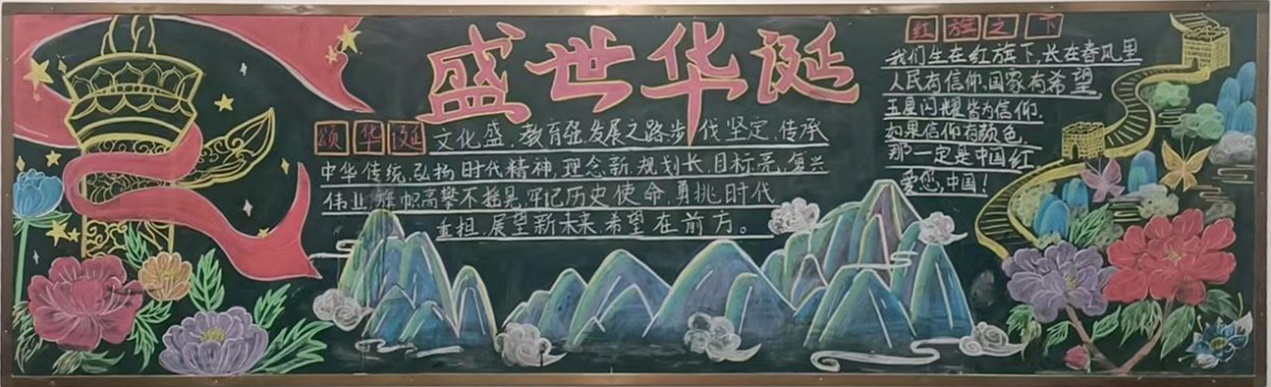 盛世华诞
颂华诞 文化盛,教育强,发展之路,步伐坚定,传承
中华传统,弘扬时代精神,理念新,规划长,目标亮,复兴
伟业,旗帜高攀不摇晃,牢记历史使命,勇挑时代
重担,展望新未来,希望在前方。
红旗之下
我们生在红旗下,长在春风里
人民有信仰,国家有希望
五星闪耀皆为信仰.
如果信仰有颜色,
那一定是中国红
爱您,中国!